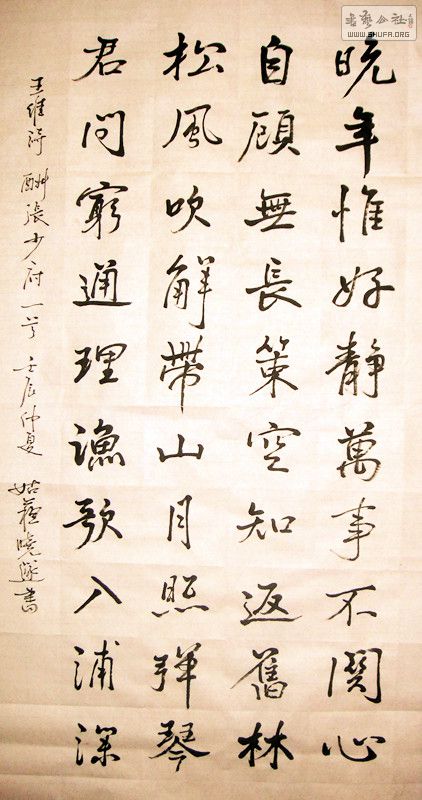 晚年惟好静萬事不関心
自顾無長策空知返舊林
松風吹解带山月照弹琴
君问窮通理漁歌入浦深
王维诗酬張少府一首 壬辰仲夏 姑蘇曉邃書
書藝公社
WWW.SHUFA.ORG